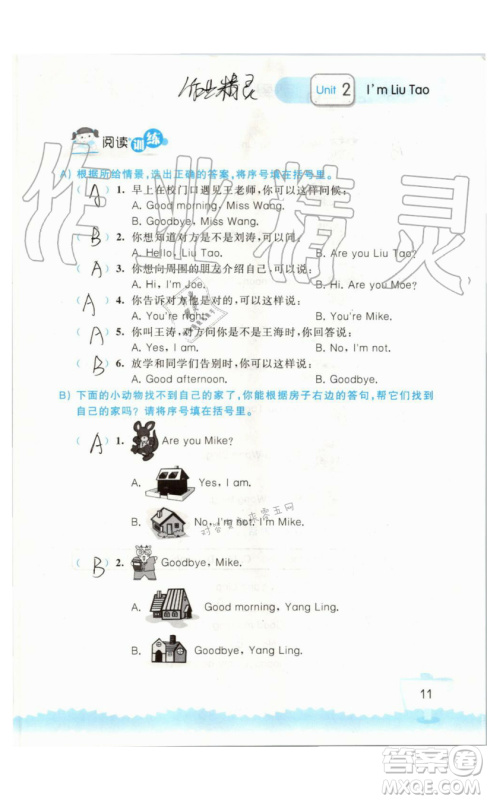 作业精灵
Unit 2 I'm Liu Tao
阅读训练
A）根据所给情景，选出正确的答案，将序号填在括号里。
（ A ）1. 早上在校门口遇见王老师，你可以这样问候：
A. Good morning, Miss Wang.
B. Goodbye, Miss Wang.
（ B ）2. 你想知道对方是不是刘涛，可以问：
A. Hello, Liu Tao. B. Are you Liu Tao?
（ A ）3. 你想向周围的朋友介绍自己，可以说：
A. Hi, I'm Joe. B. Hi, Are you Moe?
（ A ）4. 你告诉对方他是对的，可以这样说：
A. You're right. B. I'm
（ B ）5. 你叫王涛，对方问你是不是王海时，你回答说：
A. Yes, I am. B. No, I'm not.
（ B ）6. 放学和同学们告别时，你可以这样说：
A. Good afternoon. B. Goodbye.
B）下面的小动物找不到自己的家了，你能根据房子右边的答句，帮它们找到
自己的家吗？请将序号填在括号里。
（ A ）1. Are you Mike?
A. Yes, I am.
B. No, I'm not. I'm Mike.
（ B ）2. Goodbye, Mike.
A. Good morning, Yang Ling.
B. Goodbye, Yang Ling.
11
作业精灵
答案圈
MXQE.COM